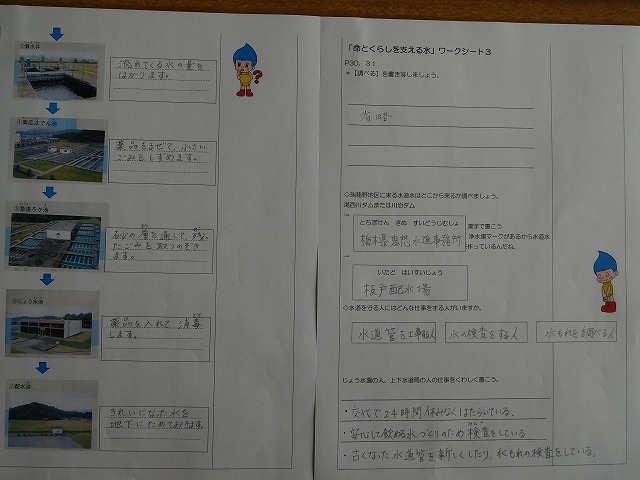 ③着水井
流れてくる水の量を
はかります。
④薬品沈でん池
薬品をまぜて、小さい
ごみをしずめます。
砂の層を通して、残っ
たごみを取りのぞき
ます。
薬品を入れて消毒
します。
⑦配水池
きれいになった水を
地下にためておきます。
「命とくらしを支える水」ワークシート3
P30、31
＝【調べる】を書き写しましょう。
省略
◇瑞穂野地区に来る水道水はどこから来るか調べましょう。
湯西川ダムまたは川治ダム
→
とちぎけん きぬ すいどうじむしょ
栃木県鬼怒水道事務所
葉まで書こう
浄水場マークがあるから水道水
作っているんだね。
→
いたど はいすいじょう
板戸配水場
◇水道を守る人にはどんな仕事をする人がいますか。
水道管を工事する人
水の検査をする人
水もれを調べる人
じょう水場の人、上下水道局の人の仕事をくわしく書こう。
・交代で24時間休みなくはたらいている。
・安心して飲める水づくりのため検査をしている
・古くなった水道管を新しくしたり、水もれの検査をしている。